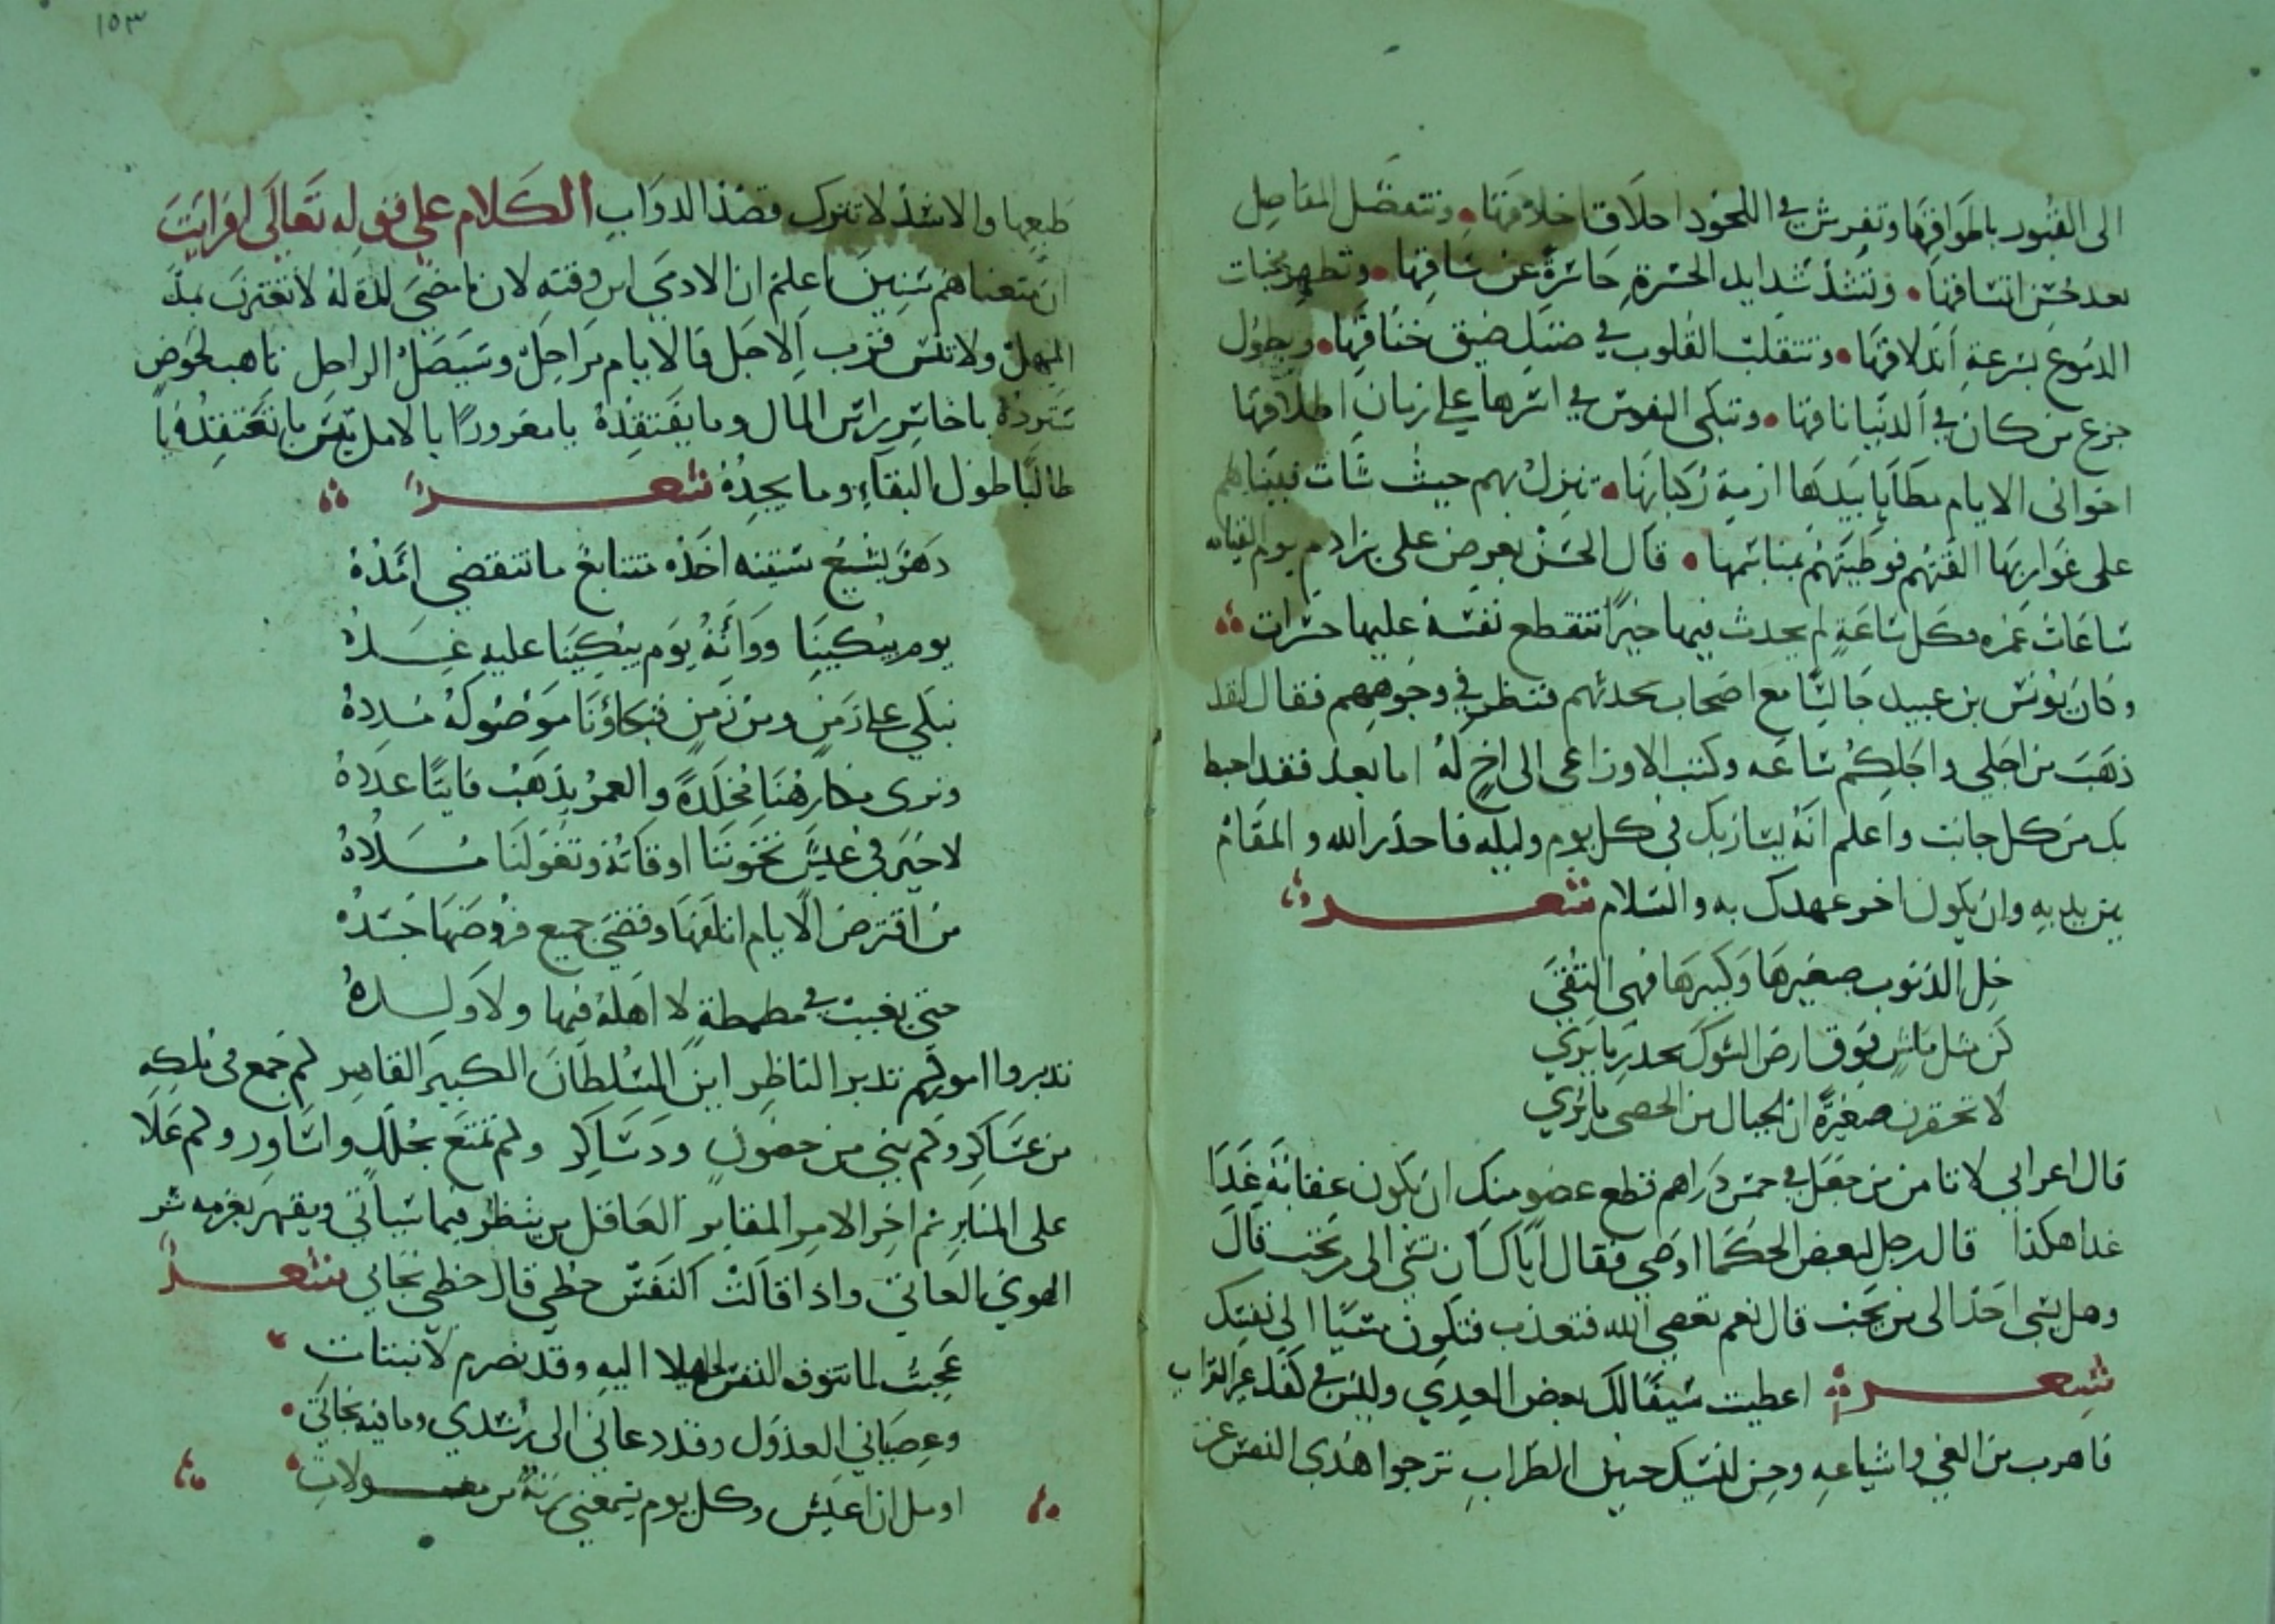 الى القبور باطواقها وتفرش في اللحود اخلاق اخلاقها وتتفصل المفاصل
بعد حسن اتساقها وتشتد شدايد الحسرة حاسرة عن ساقها وتظهر مخبات
الدموع بسرعة اندلاقها وتتقلب القلوب في ضنك ضيق خناقها ويطول
جزع من كان في الدنيا نافقا وتبكي النفوس في اسرها على زمان اطلاقها
اخواني الايام مطايا بيدها ازمة ركبانها تنزل بهم حيث شات فبيناهم
على غواربها القتهم فوطيتهم بمناسمها قال الحسن يعرض على بن ادم يوم القيامه
ساعات عمره فكل ساعة لم يحدث فيها خيرا تتقطع نفسه عليها حسرات
وكان يونس بن عبيد جالسا مع اصحاب يحدثهم فنظر في وجوههم فقال لقد
ذهب من اجلي واجلكم ساعه وكتب الاوزاعي الى اخ له اما بعد فقد احيط
بك من كل جانب واعلم انه يسار بك في كل يوم وليله فاحذر الله والمقام
بين يديه وان يكون اخر عهدك به والسلام شعر
خل الذنوب صغيرها وكبيرها فهي التقى
كن مثل ماش فوق ارض الشوك يحذر ما يرى
لا تحقرن صغيرة ان الجبال من الحصى
قال اعرابي لا تامن من جعل في خمس دراهم قطع عضو منك ان يكون عقابه غدا
غدا هكذا قال رجل لبعض الحكما اوصي فقال اياك ان تسي الى من تحب قال
وهل يسي احد الى من يحب قال نعم تعصي الله فتعذب فتكون مسيا الى نفسك
شعر اعطيت سيفا لك بعض العدي وليس في كفك غير القراب
فاهرب من الغي واشياعه وحن للنسك حنين الطراب ترجوا هدي النفس
طبعها والاسد لا تترك قصد الدواب الكلام على قوله تعالى افرايت
ان متعناهم سنين اعلم ان الادمي ابن وقته لان ما مضى لا لذة له لا تغترن بمد
المهل ولا تنس قرب الاجل فالايام مراحل وسيصل الراحل تاهب لحوض
سترده يا خاسر راس المال وما يفتقده يا مغرورا بالامل بيس ما تعتقده يا
طالبا طول البقاء وما يجده شعر
دهر يشيع سبته احده متتابع ما تنقضي امده
يوم يبكينا وواته يوم يبكينا عليه غده
نبكي على زمن ومن زمن فبكاؤنا موصوله مدده
ونرى مكارهنا مخلدة والعمر يذهب فانيا عدده
لا خير في عيش تخوننا اوقاته وتغولنا مدده
من اقترض الايام اتلفها وقضى جميع قروضها جسده
حتى يغيب في مطمطة لا اهله فيها ولا ولده
تدبروا اموركم تدبر الناظر اين السلطان الكبير القاهر كم جمع في ملكه
من عساكر وكم بني من حصون ودساكر وكم تمتع بحلل واساور وكم علا
على المنابر ثم اخر الامر المقابر العاقل من ينظر فيما سياتي ويقهر بعزمه شر
الهوي العاتي واذا قالت النفس حظي قال حظي نجاتي شعر
عجبت لما تتوق النفس جهلا اليه وقد تصرم لانبتات
وعصياني العذول وقد دعاني الى رشدي وما فيه نجاتي
اومل ان اعيش وكل يوم بسمعي رنة من معولات
١٥٣